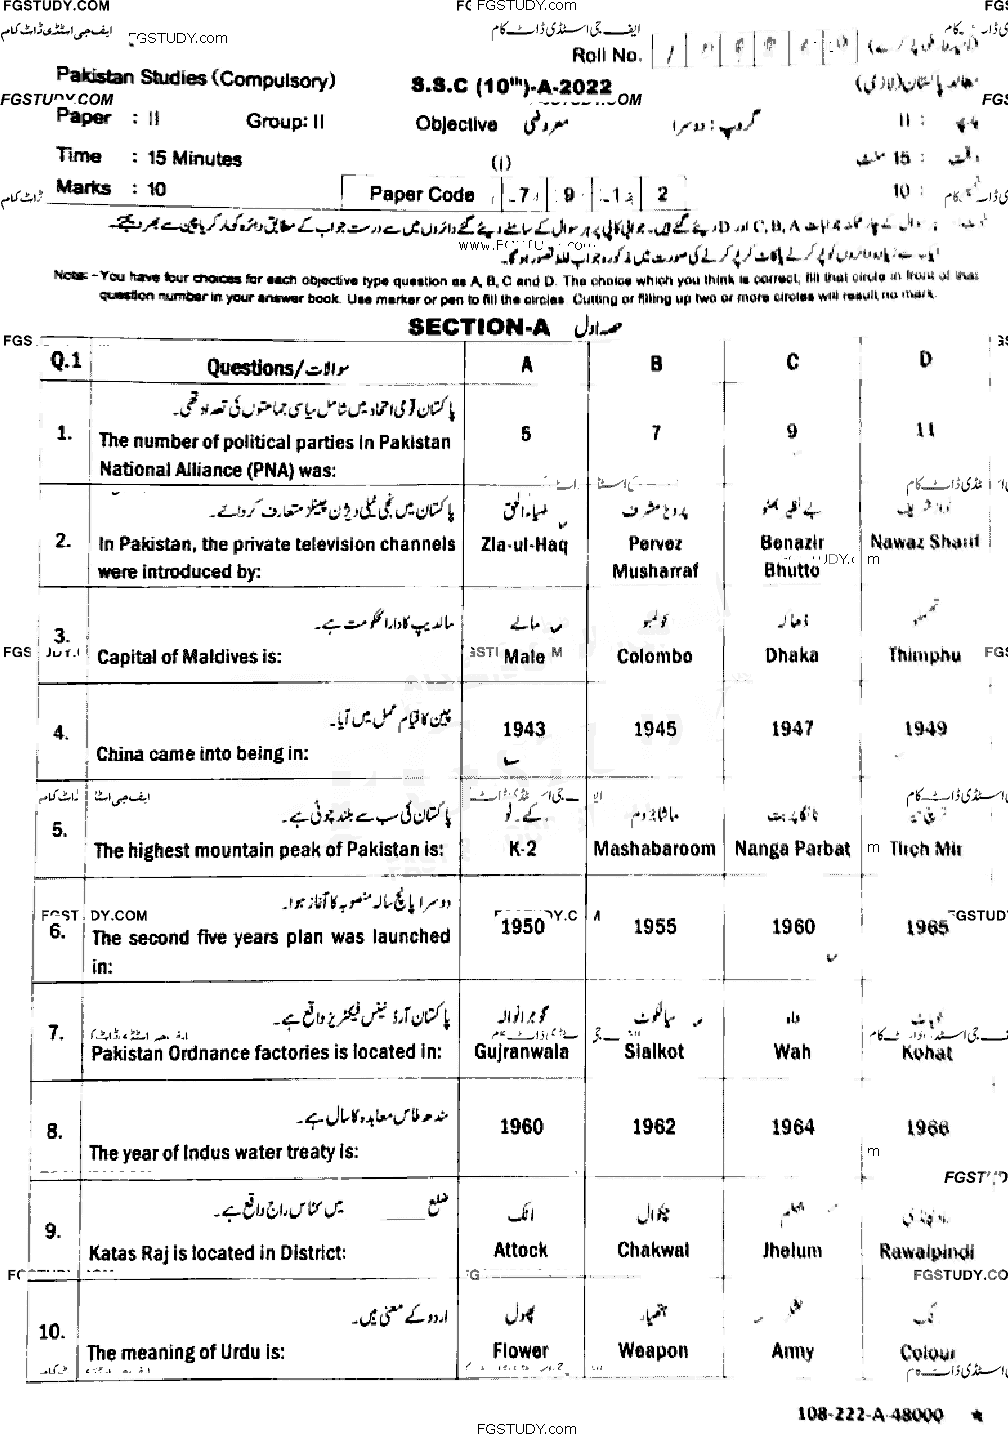 FGSTUDY.COM
ایف جی اسٹڈی ڈاٹ کام
FGSTUDY.com
ایف جی اسٹڈی ڈاٹ کام
Roll No.
Pakistan Studies (Compulsory)
S.S.C (10th)-A-2022
مطالعہ پاکستان (لازمی)
FGSTUDY.COM
Paper : II
Group: II
Objective معروضی
گروپ : دوسرا
II :
Time : 15 Minutes
(I)
وقت : 15 منٹ
Marks : 10
Paper Code 7 9 1 2
10 :
www.FGSTUDY.com
Note: -You have four choices for each objective type question as A, B, C and D. The choice which you think is correct, fill that circle in front of that
question number in your answer book. Use marker or pen to fill the circles. Cutting or filling up two or more circles will result no mark.
SECTION-A حصہ اول
Q.1 Questions/سوالات A B C D
پاکستان قومی اتحاد میں شامل سیاسی جماعتوں کی تعداد تھی۔
1. The number of political parties in Pakistan 5 7 9 11
National Alliance (PNA) was:
پاکستان میں نجی ٹیلی ویژن چینلز متعارف کروائے۔ ضیاء الحق پرویز مشرف بے نظیر بھٹو نواز شریف
2. In Pakistan, the private television channels Zia-ul-Haq Pervez Benazir Nawaz Sharif
were introduced by: Musharraf Bhutto
مالدیپ کا دارالحکومت ہے۔ مالے کولمبو ڈھاکہ تھمپو
3. Capital of Maldives is: Male Colombo Dhaka Thimphu
چین کا قیام عمل میں آیا۔
4. China came into being in: 1943 1945 1947 1949
پاکستان کی سب سے بلند چوٹی ہے۔ کے۔ٹو ماشابروم نانگا پربت ترچ میر
5. The highest mountain peak of Pakistan is: K-2 Mashabaroom Nanga Parbat Tirch Mir
دوسرا پانچ سالہ منصوبہ کا آغاز ہوا۔
6. The second five years plan was launched 1950 1955 1960 1965
in:
پاکستان آرڈیننس فیکٹریز واقع ہے۔ گوجرانوالہ سیالکوٹ واہ کوہاٹ
7. Pakistan Ordnance factories is located in: Gujranwala Sialkot Wah Kohat
سندھ طاس معاہدہ کا سال ہے۔
8. The year of Indus water treaty is: 1960 1962 1964 1966
ضلع ____ میں کٹاس راج واقع ہے۔ اٹک چکوال جہلم راولپنڈی
9. Katas Raj is located in District: Attock Chakwal Jhelum Rawalpindi
FGSTUDY.COM
اردو کے معنی ہیں۔ پھول ہتھیار لشکر رنگ
10. The meaning of Urdu is: Flower Weapon Army Colour
108-222-A-48000 ★
FGSTUDY.com